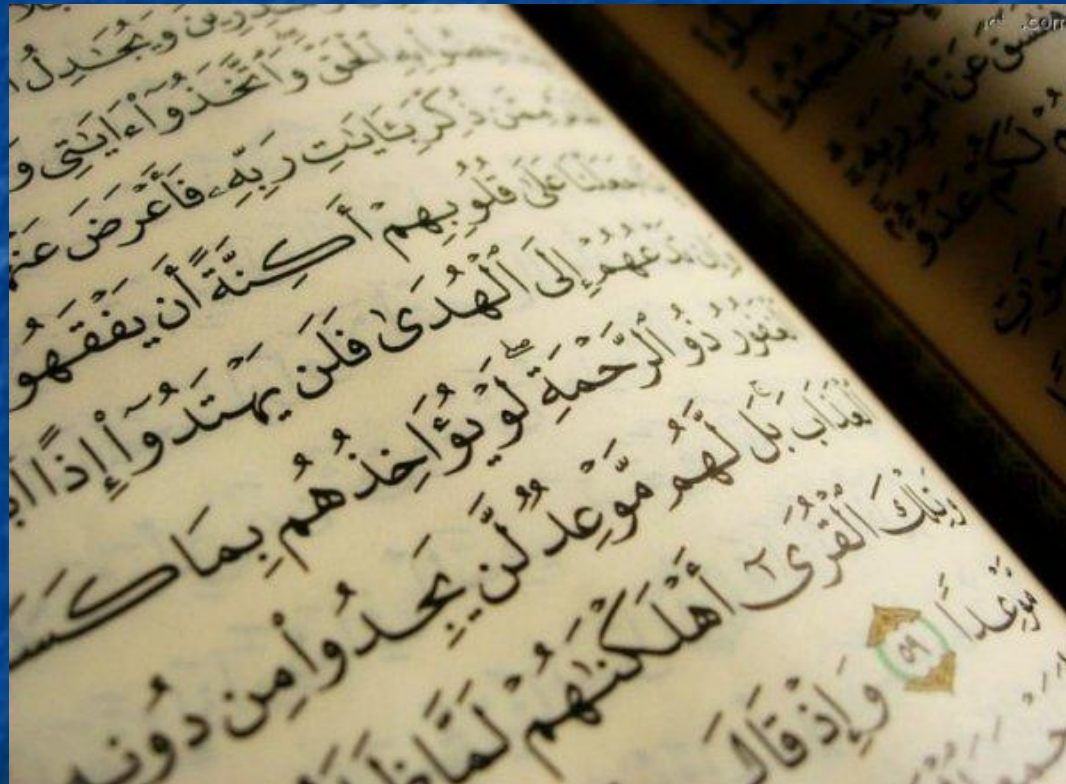 وَيُجَـٰدِلُ
ٱلْحَقَّ وَٱتَّخَذُوٓا۟ ءَايَـٰتِى
مِمَّن ذُكِّرَ بِـَٔايَـٰتِ رَبِّهِۦ فَأَعْرَضَ
جَعَلْنَا عَلَىٰ قُلُوبِهِمْ أَكِنَّةً أَن يَفْقَهُو
وَإِن تَدْعُهُمْ إِلَى ٱلْهُدَىٰ فَلَن يَهْتَدُوٓا۟ إِذًا
ٱلْغَفُورُ ذُو ٱلرَّحْمَةِ ۖ لَوْ يُؤَاخِذُهُم بِمَا كَسَ
ٱلْعَذَابَ ۚ بَل لَّهُم مَّوْعِدٌ لَّن يَجِدُوا۟ مِن دُونِهِ
وَتِلْكَ ٱلْقُرَىٰٓ أَهْلَكْنَـٰهُمْ لَمَّا
مَّوْعِدًا ٥٩ وَإِذْ قَالَ
فَفَسَقَ عَنْ أَمْرِ رَبِّهِۦٓ
لَكُمْ عَدُوٌّۢ
.com